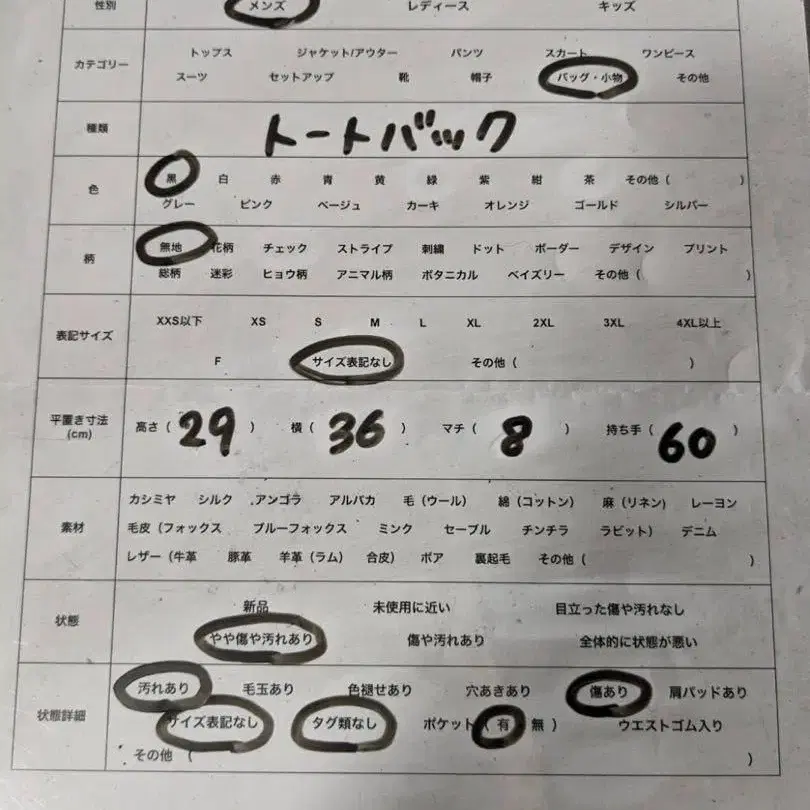 性別 メンズ レディース キッズ
カテゴリー トップス ジャケット/アウター パンツ スカート ワンピース
スーツ セットアップ 靴 帽子 バッグ・小物 その他
種類 トートバック
色 黒 白 赤 青 黄 緑 紫 紺 茶 その他 ( )
グレー ピンク ベージュ カーキ オレンジ ゴールド シルバー
柄 無地 花柄 チェック ストライプ 刺繍 ドット ボーダー デザイン プリント
総柄 迷彩 ヒョウ柄 アニマル柄 ボタニカル ペイズリー その他 ( )
表記サイズ XXS以下 XS S M L XL 2XL 3XL 4XL以上
F サイズ表記なし その他 ( )
平置き寸法 (cm) 高さ ( 29 ) 横 ( 36 ) マチ ( 8 ) 持ち手 ( 60 )
素材 カシミヤ シルク アンゴラ アルパカ 毛 (ウール) 綿 (コットン) 麻 (リネン) レーヨン
毛皮 (フォックス ブルーフォックス ミンク セーブル チンチラ ラビット) デニム
レザー (牛革 豚革 羊革 (ラム) 合皮) ボア 裏起毛 その他 ( )
状態 新品 未使用に近い 目立った傷や汚れなし
やや傷や汚れあり 傷や汚れあり 全体的に状態が悪い
状態詳細 汚れあり 毛玉あり 色褪せあり 穴あきあり 傷あり 肩パッドあり
サイズ表記なし タグ類なし ポケット ( 有 ・ 無 ) ウエストゴム入り
その他 ( )